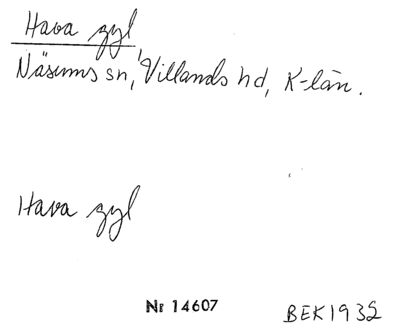 Hava gyl,
Näsums sn, Villands hd, K-län.
Hava gyl
Nr 14607
BEK1932